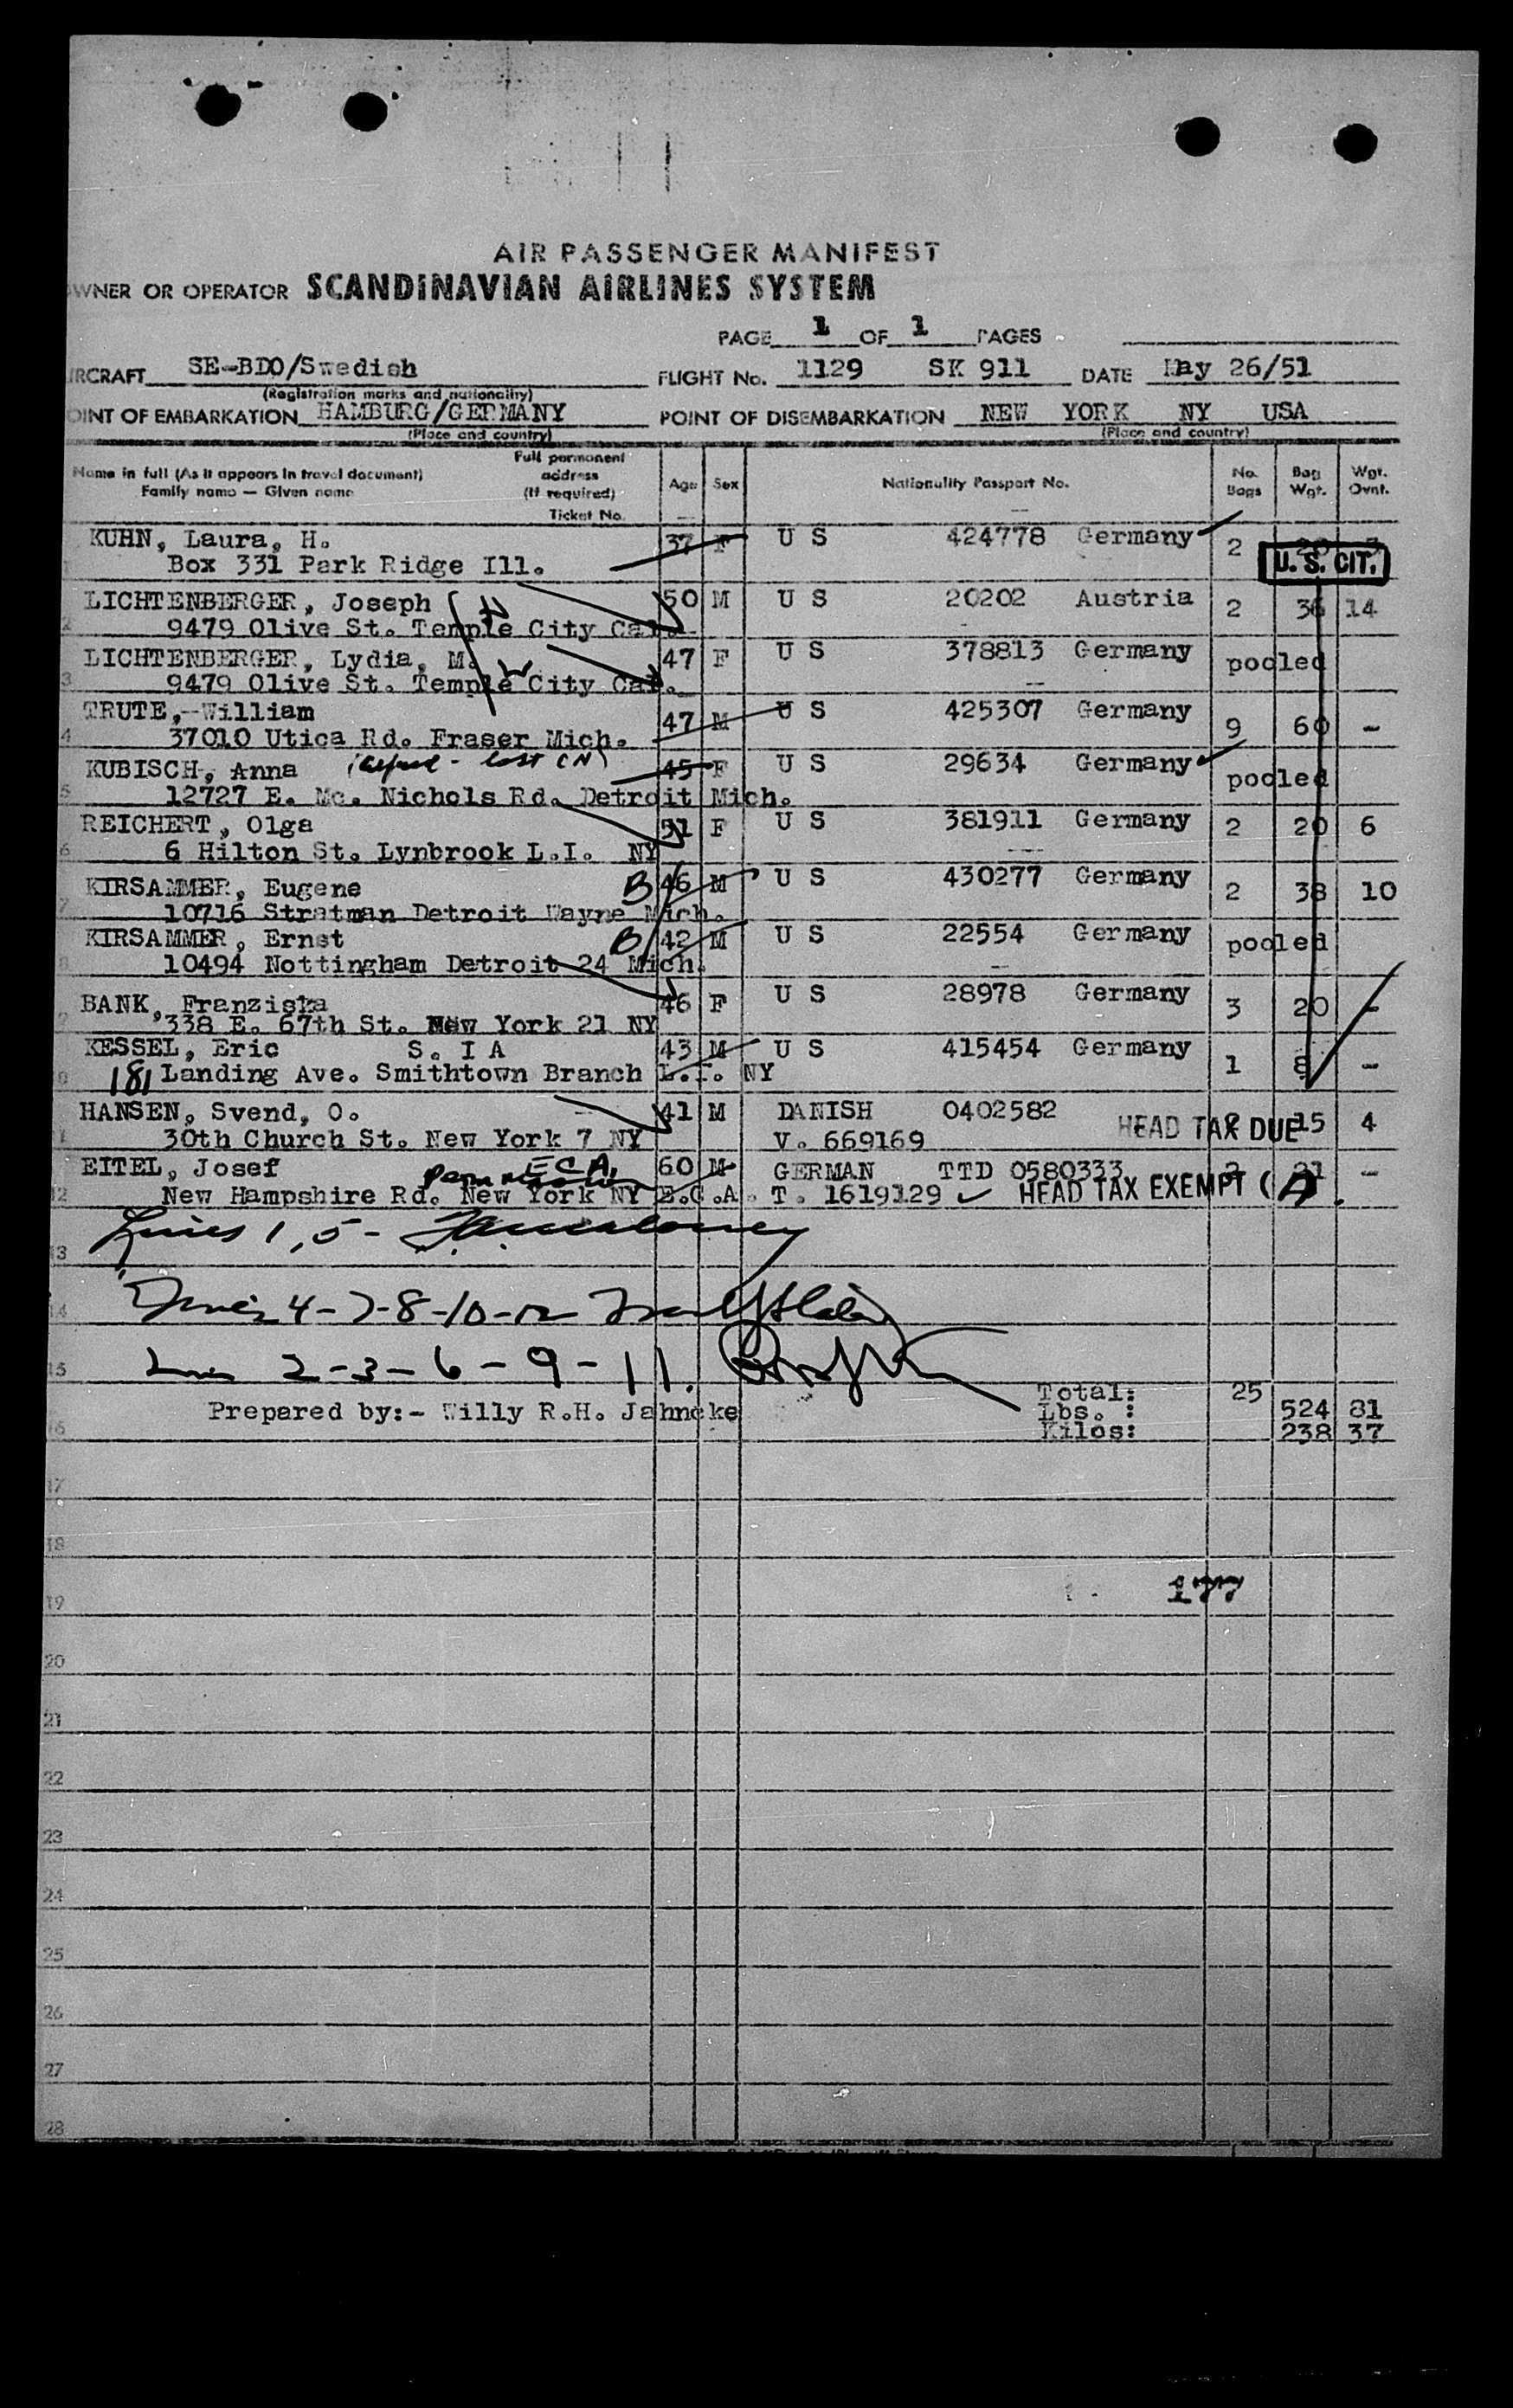 AIR PASSENGER MANIFEST
OWNER OR OPERATOR SCANDINAVIAN AIRLINES SYSTEM
PAGE 1 OF 1 PAGES
AIRCRAFT SE-BDO/Swedish FLIGHT No. 1129 SK 911 DATE May 26/51
(Registration marks and nationality)
POINT OF EMBARKATION HAMBURG/GERMANY POINT OF DISEMBARKATION NEW YORK NY USA
(Place and country) (Place and country)
Name in full (As it appears in travel document) Family name — Given name Full permanent address (If required) Ticket No. Age Sex Nationality Passport No. No. Bags Bag Wgt. Wgt. Ovnt.
KUHN, Laura, H. 37 F U S 424778 Germany 2
1 Box 331 Park Ridge Ill. U. S. CIT.
LICHTENBERGER, Joseph 50 M U S 20202 Austria 2 36 14
2 9479 Olive St. Temple City Cal.
LICHTENBERGER, Lydia, M. 47 F U S 378813 Germany pooled
3 9479 Olive St. Temple City Cal.
TRUTE, William 47 M U S 425307 Germany 9 60 -
4 37010 Utica Rd. Fraser Mich.
KUBISCH, Anna lost (N) 45 F U S 29634 Germany pooled
5 12727 E. Mc. Nichols Rd. Detroit Mich.
REICHERT, Olga 51 F U S 381911 Germany 2 20 6
6 6 Hilton St. Lynbrook L.I. NY
KIRSAMMER, Eugene B 46 M U S 430277 Germany 2 38 10
7 10716 Stratman Detroit Wayne Mich.
KIRSAMMER, Ernst B 42 M U S 22554 Germany pooled
8 10494 Nottingham Detroit 24 Mich.
BANK, Franziska 46 F U S 28978 Germany 3 20 -
9 338 E. 67th St. New York 21 NY
KESSEL, Eric S. I A 43 M U S 415454 Germany 1 8 -
181 Landing Ave. Smithtown Branch L.I. NY
HANSEN, Svend, O. 41 M DANISH 0402582 HEAD TAX DUE 15 4
30th Church St. New York 7 NY V. 669169
EITEL, Josef ECA. 60 M GERMAN TTD 0580333 21 -
12 New Hampshire Rd. New York NY E.C.A. T. 1619129 HEAD TAX EXEMPT (A).
13 Lines 1, 5 -
14 Lines 4-7-8-10-12
15 Lines 2-3-6-9-11.
Total: 25
Prepared by:- Willy R.H. Jahncke Lbs. : 524 81
16 Kilos: 238 37
17
18
19 177
20
21
22
23
24
25
26
27
28